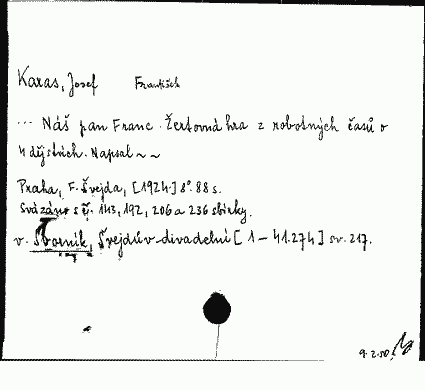 Karas, Josef František
... Náš pan Franc. Žertovná hra z robotných časů o
4 dějstvích. Napsal ~~
Praha, F. Švejda, [1924.] 8°. 88 s.
Svázáno s č. 143, 192, 206 a 236 sbírky.
v. Sborník, Švejdův divadelní [1-41.274] sv. 217.
9.2.50.